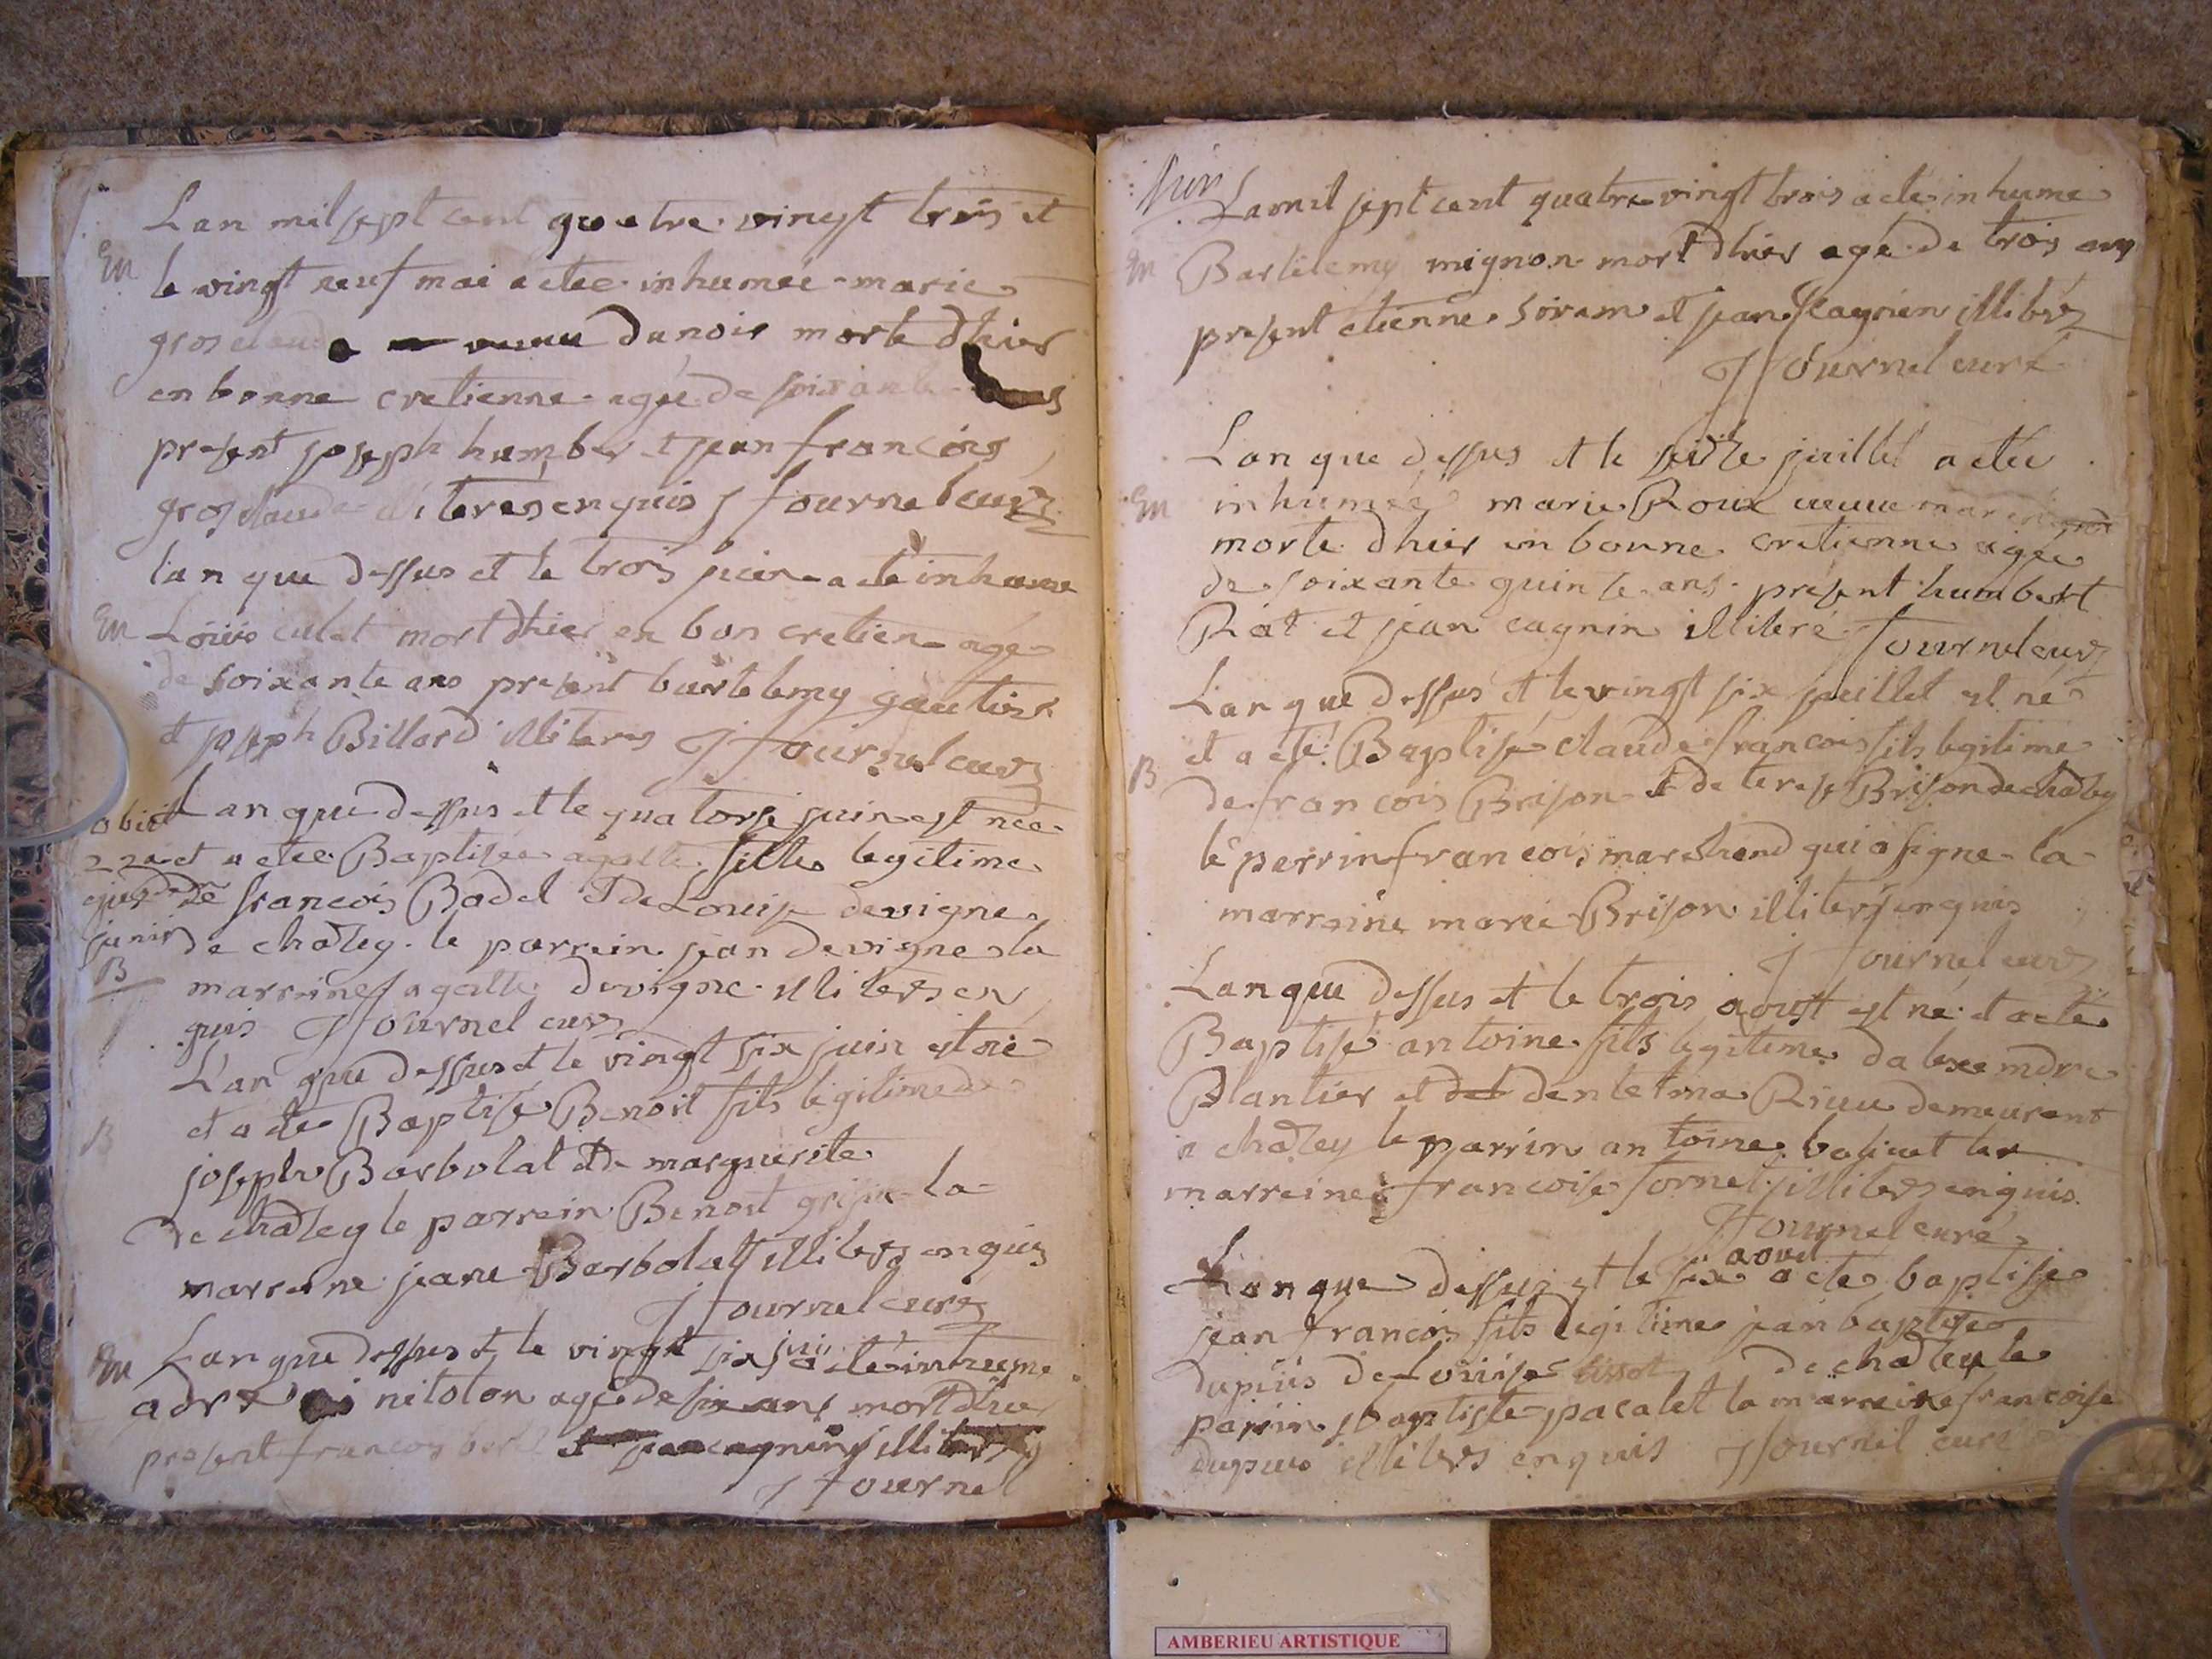 Lan mil sept cent quatre vingt trois et
En
le vingt neuf mai a etee inhumée marie
grosclaude danoir morte dhier
en bonne cretienne agée de soixante
present joseph humber et jean francois
grosclaude illiteres enquis J fournel curé
lan que dessus et le trois juin a eté inhume
En
Louis culet mort dhier en bon cretien agé
de soixante ans present bartelemy gautier
et joseph Billard illiteres J fournel curé
obiit
Lan que dessus et le quatorse juin est née
22a
et a etee Baptisée agatte fille legitime
ejusdem
de francois Badel et de Louise devigne
junii
de chatey le parrein jean devigne la
B
marreine agatte devigne illiteres en
quis J fournel curé
Lan que dessus et le vingt six juin est né
B
et a ete Baptisé Benoit fils legitime de
joseph Barbolat et de marguerite
de chatey le parrein Benoit la
marreine jeane Barbolat illiteres enquis
J fournel curé
En
Lan que dessus et le vingt six juin a eté inhume
nitoton agé de six ans mort dhier
present francois et jean cagnin
J fournel
Lan mil sept cent quatre vingt trois a eté inhume
En
Bartilemy mignon mort dhier agé de trois ans
present etienne et jean
J fournel curé
Lan que dessus et le seize juillet a etée
En
inhumée marie Roux veuve
morte dhier en bonne cretienne agée
de soixante quinse ans présent humbert
Rat et jean cagnin illiteré fournel curé
Lan que dessus et le vingt six juillet est né
et a eté Baptisé claude francois fils legitime
B
de francois Brison et de terese Brison de chatey
le parrin francois marchand qui a signe la
marreine marie Brison illiteres enquis
J fournel curé
Lan que dessus et le trois aoust est né et a eté
Baptisé antoine fils legitime dalexemdre
Plantier et Rieu demeurent
a chatey le parrin antoine
marreine francoise fornel illiteres enquis
J fournel curé
aout
Lan que dessus et le six a ete baptise
jean francois fils legitime jean baptiste
dupuis de Louise tissot de chatey le
parrin baptiste pacalet la marreine francoise
dupuis illiteres enquis J fournel curé
AMBERIEU ARTISTIQUE